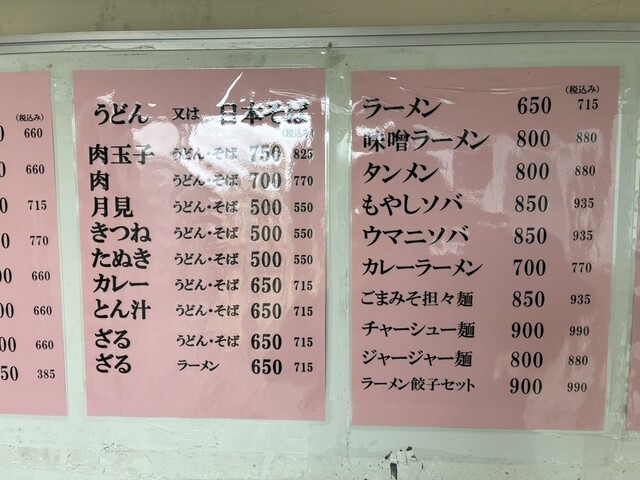 (税込み)
660
660
715
770
660
660
50 385
うどん 又は 日本そば
(税込み)
肉玉子 うどん・そば 750 825
肉 うどん・そば 700 770
月見 うどん・そば 500 550
きつね うどん・そば 500 550
たぬき うどん・そば 500 550
カレー うどん・そば 650 715
とん汁 うどん・そば 650 715
ざる うどん・そば 650 715
ざる ラーメン 650 715
(税込み)
ラーメン 650 715
味噌ラーメン 800 880
タンメン 800 880
もやしソバ 850 935
ウマニソバ 850 935
カレーラーメン 700 770
ごまみそ担々麺 850 935
チャーシュー麺 900 990
ジャージャー麺 800 880
ラーメン餃子セット 900 990